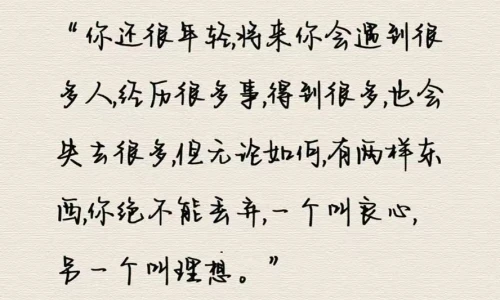 “你还很年轻,将来你会遇到很
多人,经历很多事,得到很多,也会
失去很多,但无论如何,有两样东
西,你绝不能丢弃,一个叫良心,
另一个叫理想。”